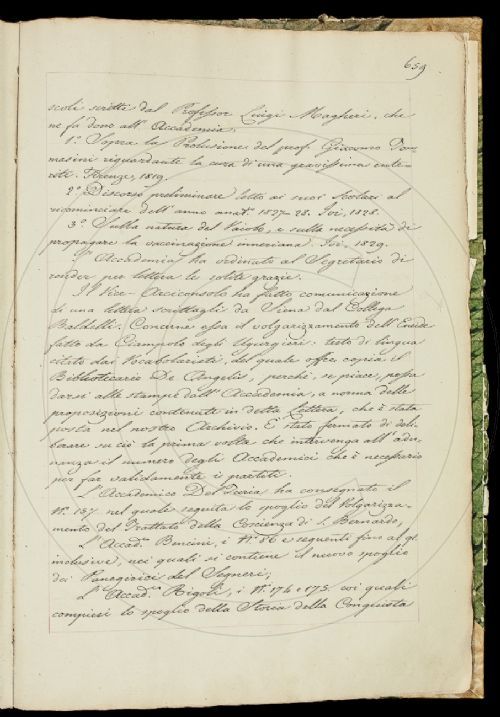 659
scoli scritti dal Professor Luigi Magheri, che
ne fa dono all'Accademia.
1.° Sopra la Prolusione del prof. Giacomo Tom-
mesini riguardante la cura di una gravissima ente-
rite. Firenze, 1819.
2.° Discorso preliminare letto ai suoi scolari al
ricominciare dell'anno anat. 1827-28. Ivi, 1828.
3.° Sulla natura del Vaiolo, e sulla necessità di
propagare la vaccinazione ienneriana. Ivi, 1829.
L'Accademia ha ordinato al Segretario di
render per lettera le solite grazie.
Il Vice-Arciconsolo ha fatto comunicazione
di una lettera scrittagli da Siena dal Collega
Baldelli. Concerne essa il volgarizzamento dell'Eneide
fatto da Ciampolo degli Ugurgieri: testo di lingua
citato dai Vocabolaristi, del quale offre copia il
Bibliotecario De Angelis, perchè, se piace, possa
darsi alle stampe dall'Accademia, a norma delle
proposizioni contenute in detta Lettera, che è stata
posta nel nostro Archivio. È stato fermato di deli-
berare su ciò la prima volta che intervenga all'adu-
nanza il numero degli Accademici che è necessario
per far validamente i partiti.
L'Accademico Del Furia ha consegnato il
N.° 137 nel quale seguita lo spoglio del Volgarizza-
mento del Trattato della Coscienza di S. Bernardo,
L'Accad.co Bencini, i N.i 86 e seguenti fino al 91
inclusive, nei quali si contiene il nuovo spoglio
dei Panegirici del Segneri;
L'Accad.co Rigoli, i N.i 174 e 175. coi quali
compiesi lo spoglio della Storia della Conquista